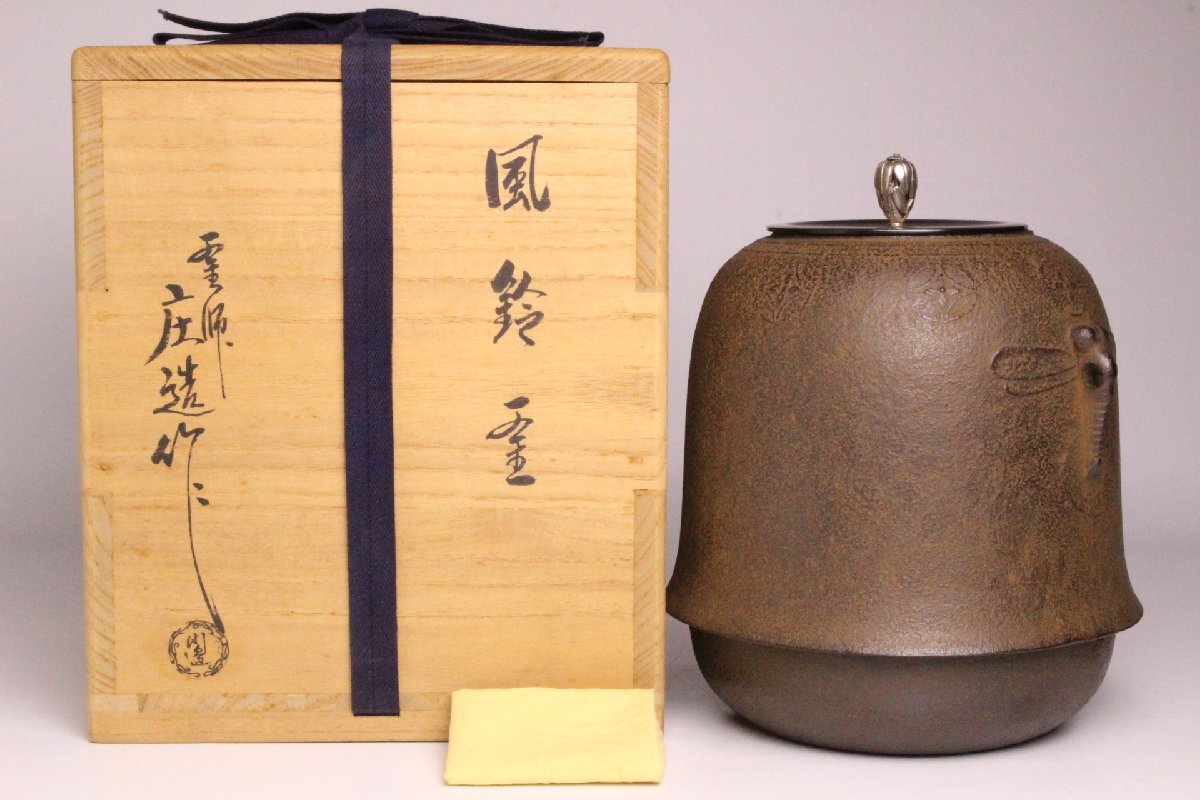 風鈴釜
釜師
庄造作